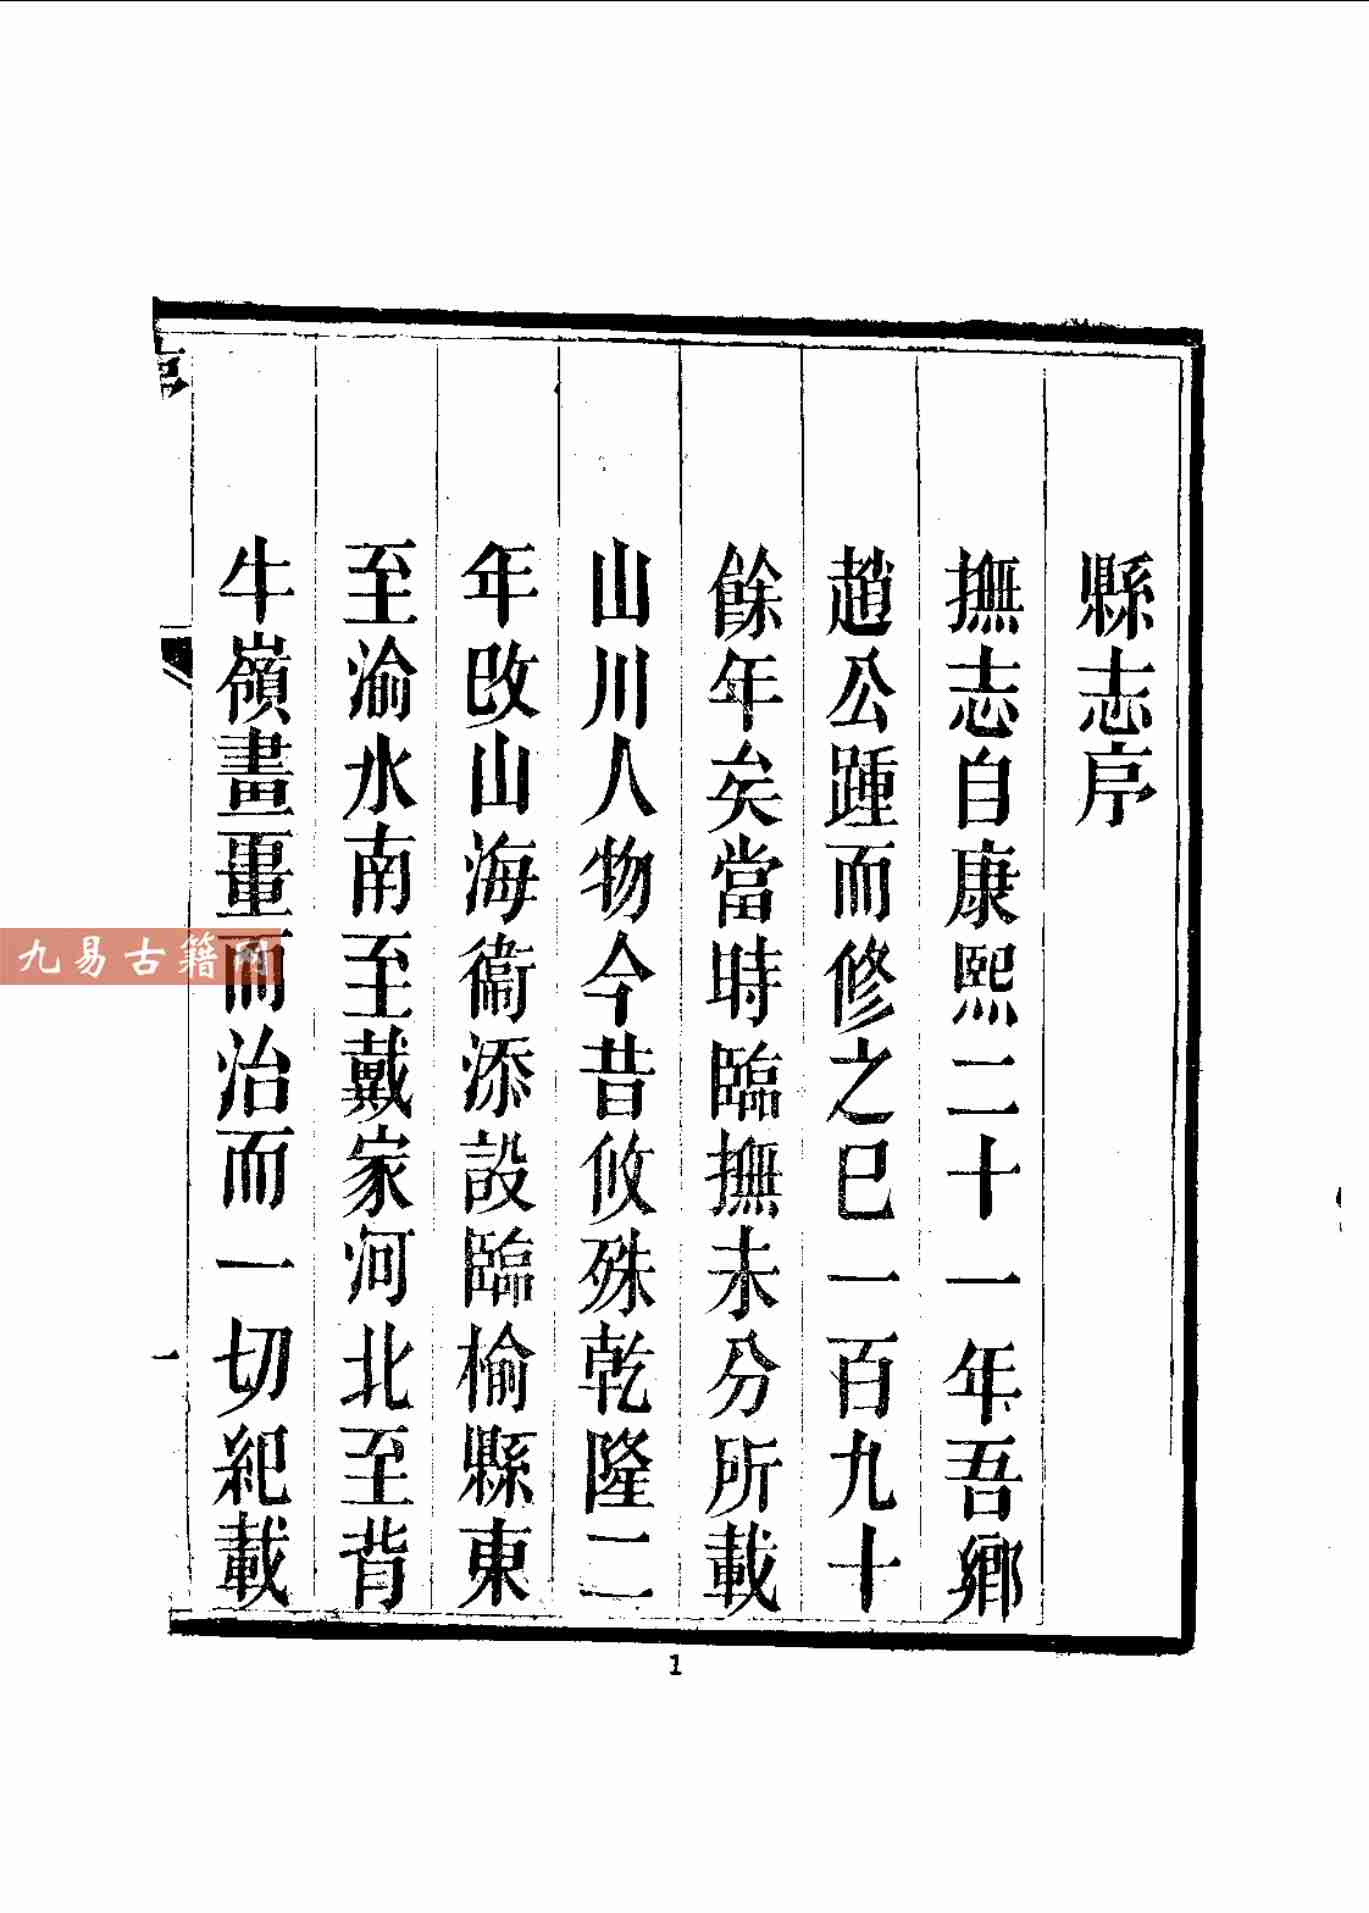 縣志序
撫志自康熙二十一年吾鄉
趙公踵而修之已一百九十
餘年矣當時臨撫未分所載
山川人物今昔攸殊乾隆二
年改山海衞添設臨榆縣東
至渝水南至戴家河北至背
牛嶺畫畺而治而一切紀載
序
一
九易古籍网
1